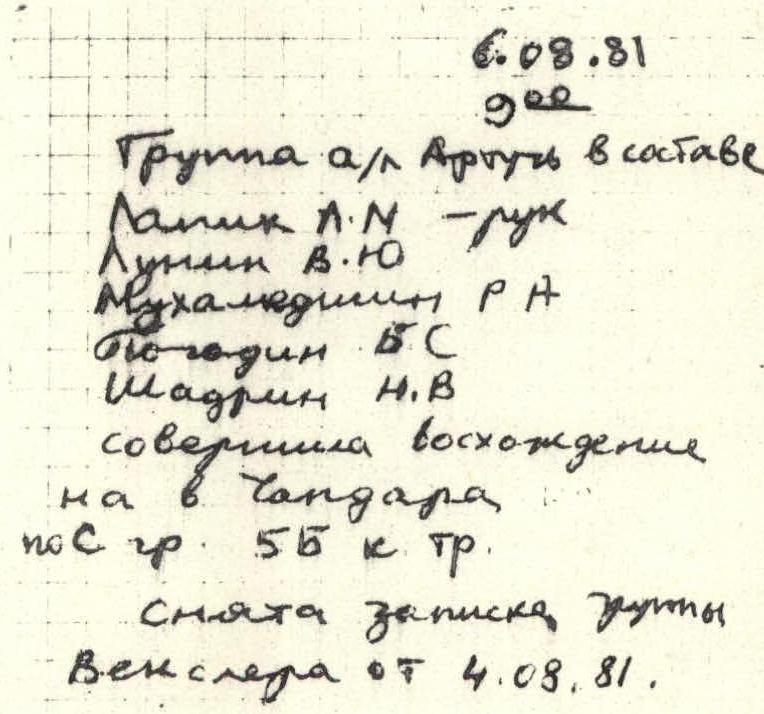 6.08.81
9⁰⁰
Группа а/л Артуч в составе
Лапик А.М – рук
Лунин В.Ю
Мухамедшин Р А
Погодин Б С
Шадрин Н.В
совершила восхождение
на в Чапдара
по С гр. 5Б к тр.
Снята записка группы
Векслера от 4.08.81.